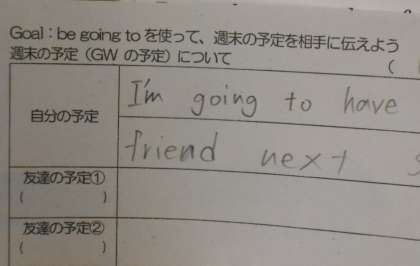 Goal : be going to を使って、週末の予定を相手に伝えよう
週末の予定（GW の予定）について
(
自分の予定
I'm going to have
friend next
友達の予定①
( )
友達の予定②
( )